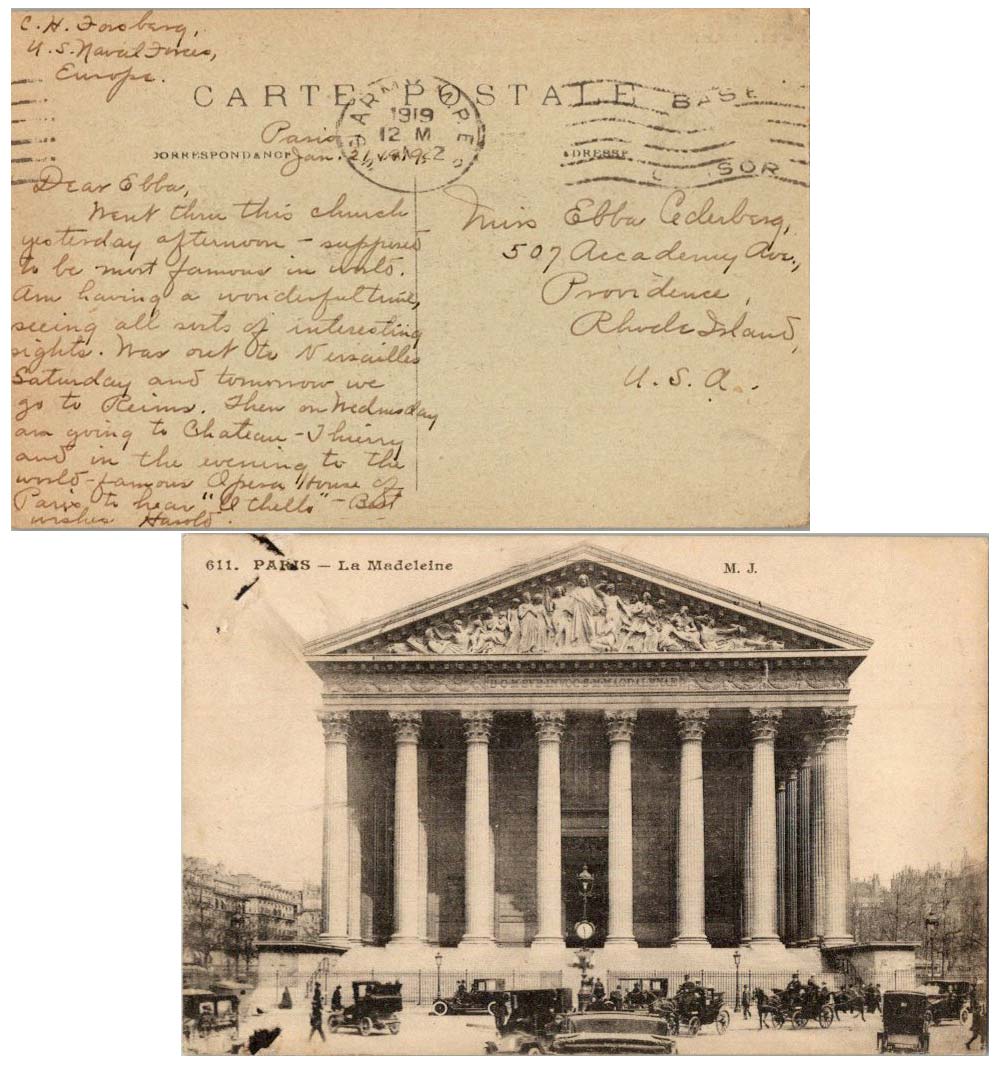 C. H. Forsberg,
U.S. Naval Forces,
Europe.
CARTE POSTALE
1919
12 M
BASE
SOR
Paris
CORRESPONDANCE
Jan. 21, 1919
ADRESSE
Dear Ebba,
Went thru this church
yesterday afternoon – supposed
to be most famous in world.
Am having a wonderful time,
seeing all sorts of interesting
sights. Was out to Versailles
Saturday and tomorrow we
go to Reims. Then on Wednesday
am going to Chateau-Thierry
and in the evening to the
world-famous Opera House of
Paris to hear "Othello" – Best
wishes Harold.
Miss Ebba Cederberg,
507 Accademy Ave.,
Providence,
Rhode Island,
U. S. A.
611. PARIS – La Madeleine
M. J.